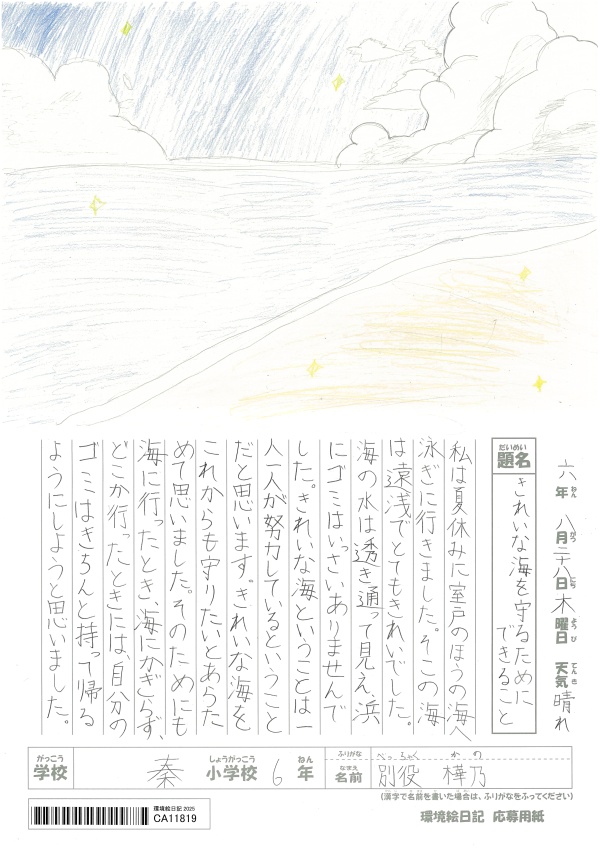 六年 八月二十八日 木曜日 天気 晴れ
ねん がつ にち ようび てんき
だいめい
題名
きれいな海を守るために
できること
私は夏休みに室戸のほうの海へ
泳ぎに行きました。そこの海
は遠浅でとてもきれいでした。
海の水は透き通って見え、浜
にゴミはいっさいありませんで
した。きれいな海ということは一
人一人が努力しているということ
だと思います。きれいな海を
これからも守りたいとあらた
めて思いました。そのためにも
海に行ったとき、海にかぎらず、
どこか行ったときには、自分の
ゴミはきちんと持って帰る
ようにしようと思いました。
がっこう しょうがっこう ねん
学校 秦 小学校 6 年
ふりがな べっちゃく かの
なまえ
名前 別役 樺乃
(漢字で名前を書いた場合は、ふりがなをふってください)
環境絵日記 2025
CA11819
環境絵日記 応募用紙